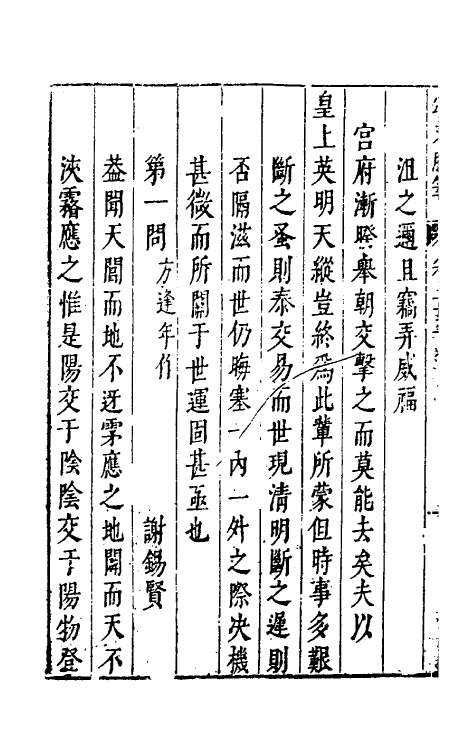 沮之邇且竊弄威福
宮府漸暌舉朝交擊之而莫能去矣夫以
皇上英明天縱豈終爲此輩所蒙但時事多艱
斷之蚤則泰交易而世現清明斷之遲則
否隔滋而世仍晦塞一內一外之際決機
甚微而所關于世運固甚亟也
第一問 方逢年作 謝錫賢
葢聞天闓而地不迓霂應之地闢而天不
浹霧應之惟是陽交于陰陰交于陽物登